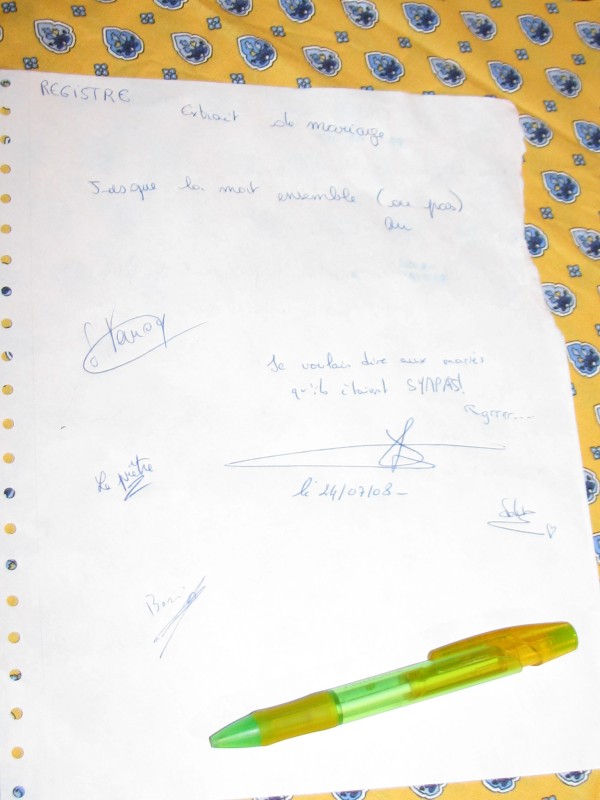 REGISTRE
Extrait de mariage
Jusque la mort ensemble (ou pas)
au
Je voulais dire aux mariés
qu'ils étaient SYMPAS!
Rgrrer....
Le prêtre
le 24/07/08